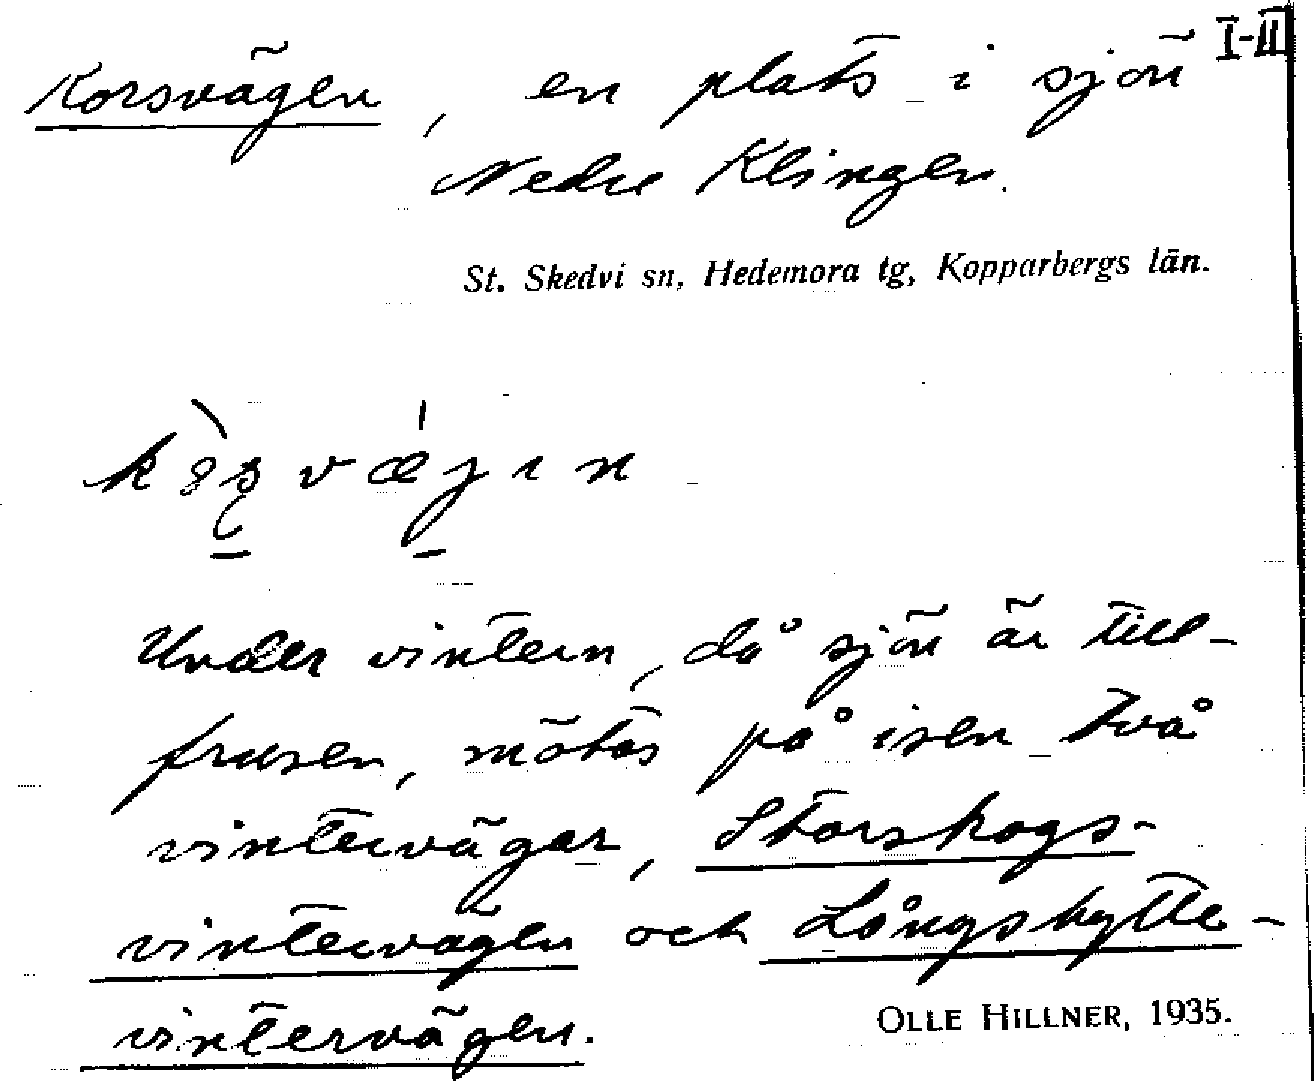 I-II
Korsvägen, en plats i sjön
Nedre Klingen.
St. Skedvi sn, Hedemora tg, Kopparbergs län.
Under vintern, då sjön är till-
frusen, mötas på isen två
vintervägar, Storskogs-
vintervägen och Långshytte-
vintervägen.
OLLE HILLNER, 1935.